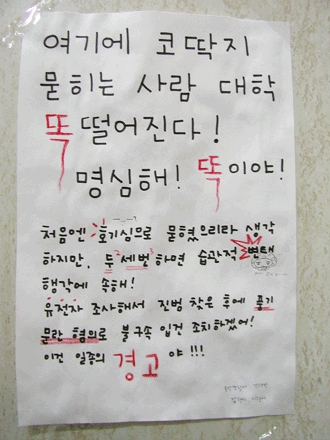 여기에 코딱지
묻히는 사람 대학
똑 떨어진다!
명심해! 똑이야!
처음엔 호기심으로 묻혔으리라 생각
하지만, 두세번 하면 습관적 변태
행각에 속해!
유전자 조사해서 진범 찾은 후에 풍기
문란 혐의로 불구속 입건 조치하겠어!
이건 일종의 경고야!!!